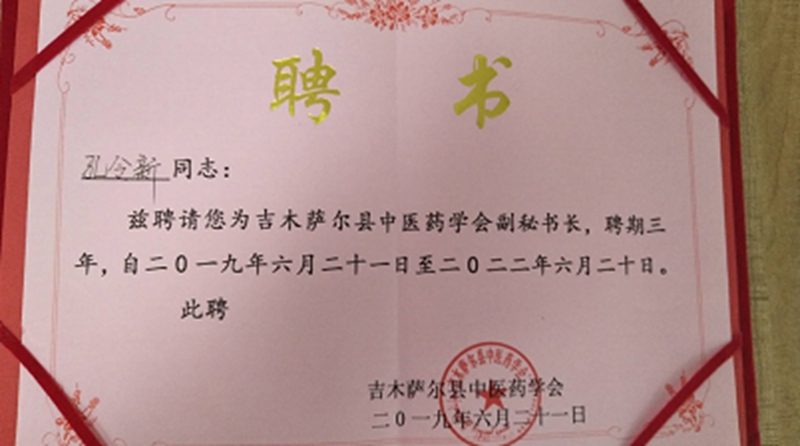 聘书
孔令新同志：
兹聘请您为吉木萨尔县中医药学会副秘书长，聘期三
年，自二0一九年六月二十一日至二0二二年六月二十日。
此聘
吉木萨尔县中医药学会
吉木萨尔县中医药学会
二0一九年六月二十一日